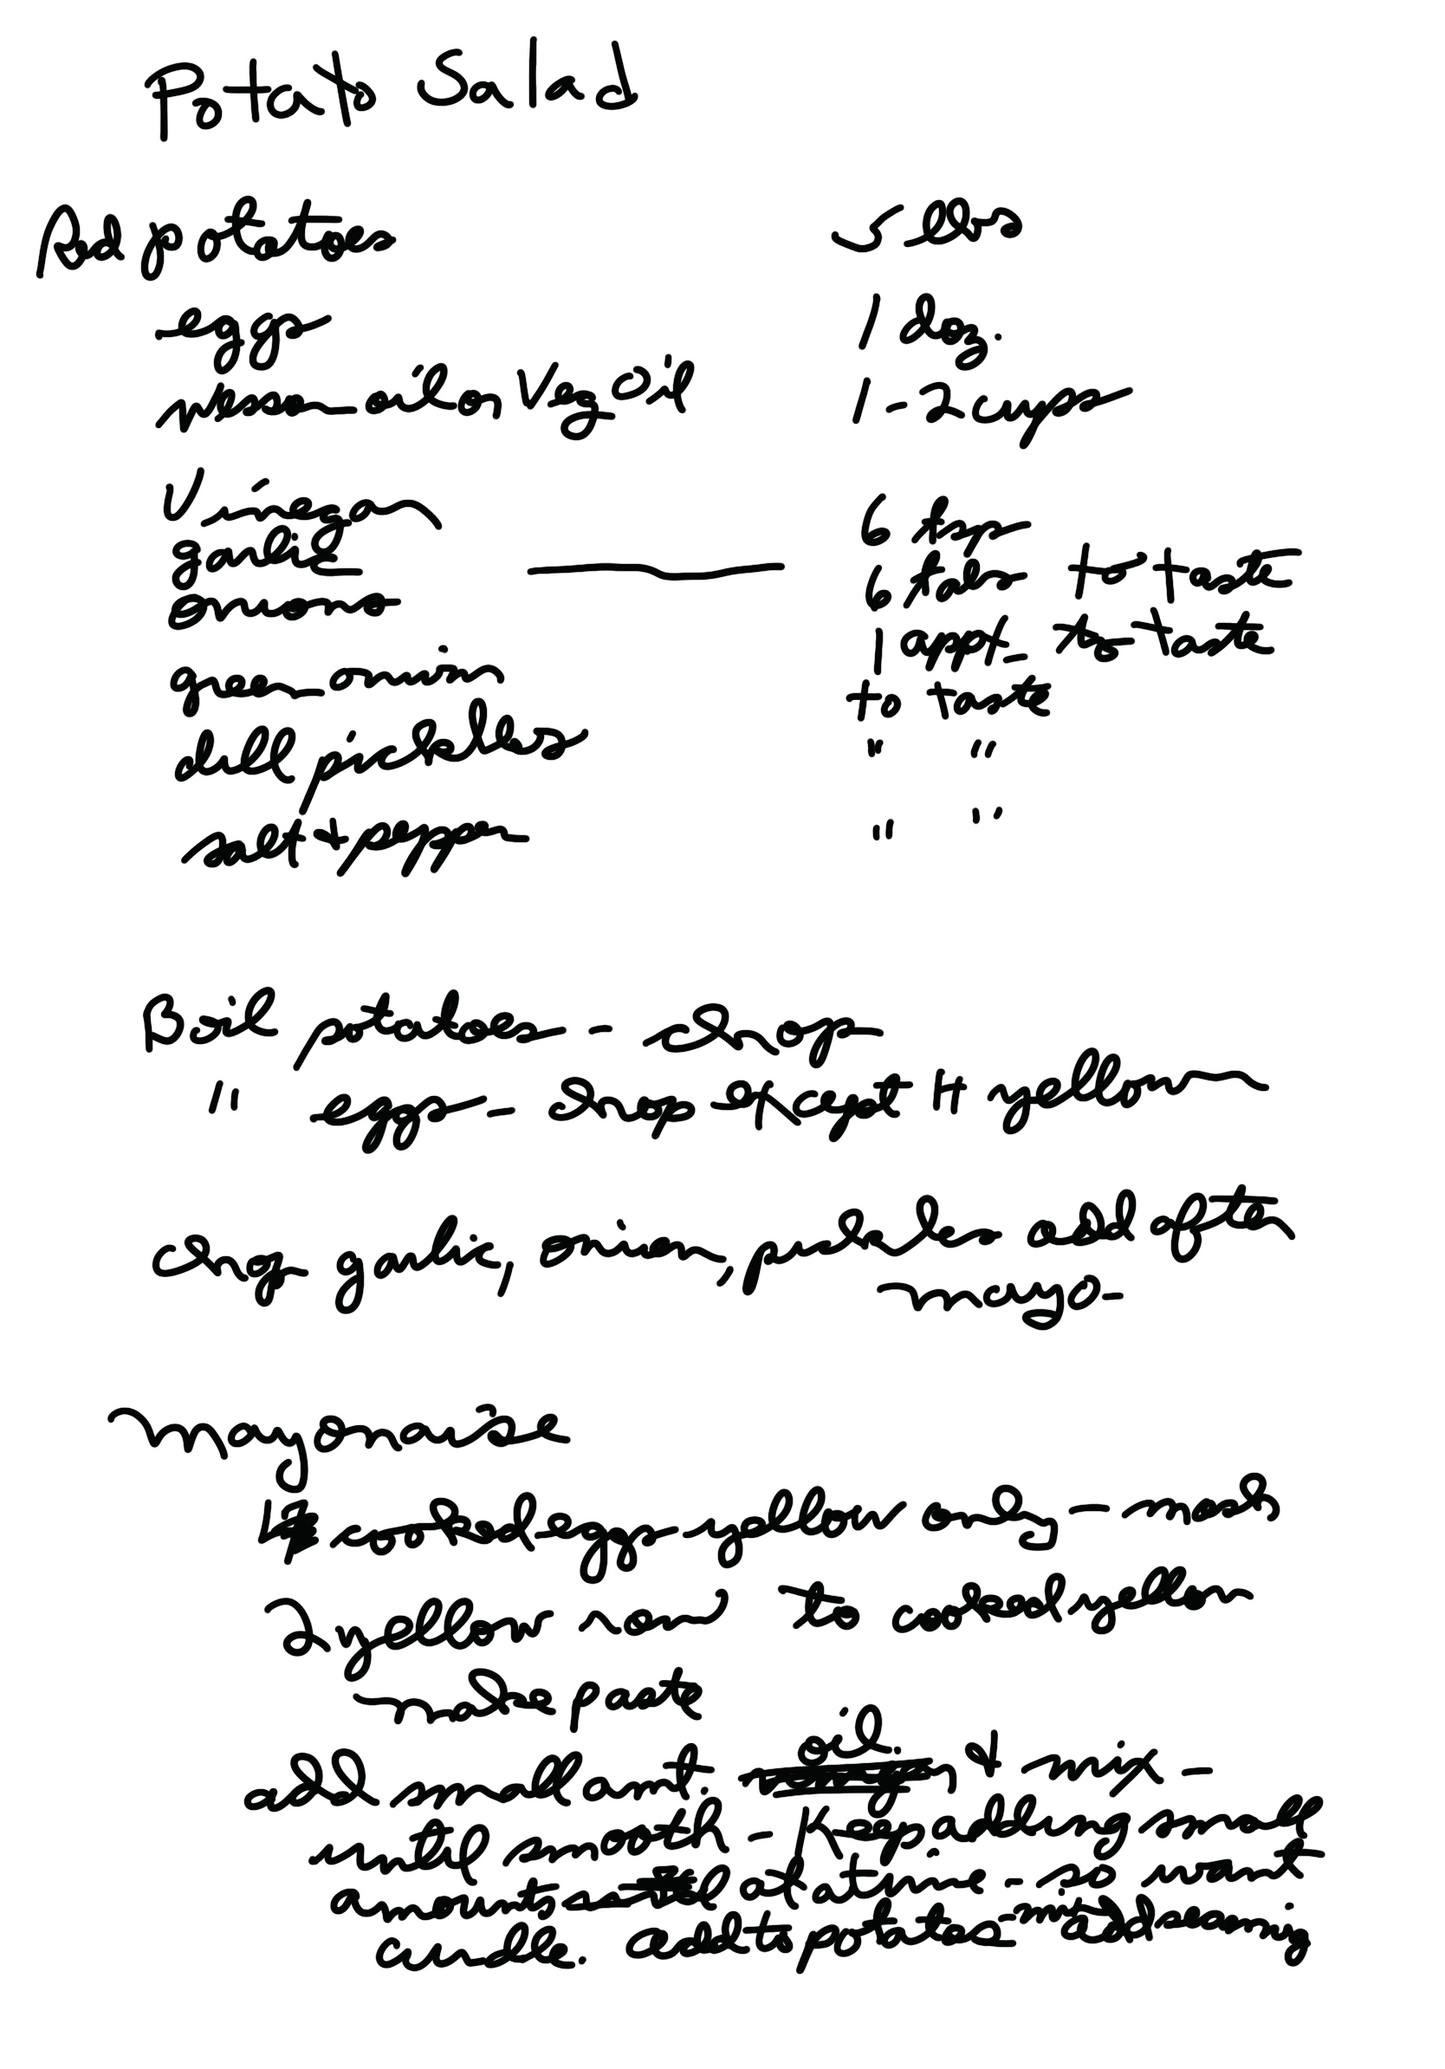 Potato Salad
Red potatoes 5 lbs
eggs 1 doz.
Wesson oil or Veg Oil 1-2 cups
Vinegar 6 tsp
garlic 6 tabs to taste
onions 1 appt- to taste
green onion to taste
dill pickles " "
salt + pepper " "
Boil potatoes - chop
" eggs - chop except 4 yellow
Chop garlic, onion, pickles add after
mayo-
Mayonaise
4 cooked eggs yellow only - mash
2 yellow raw to cooked yellow
make paste
add small amt. oil. & mix -
until smooth - Keep adding small
amounts at a time - so want
curdle. add to potatoes - mix add seasning